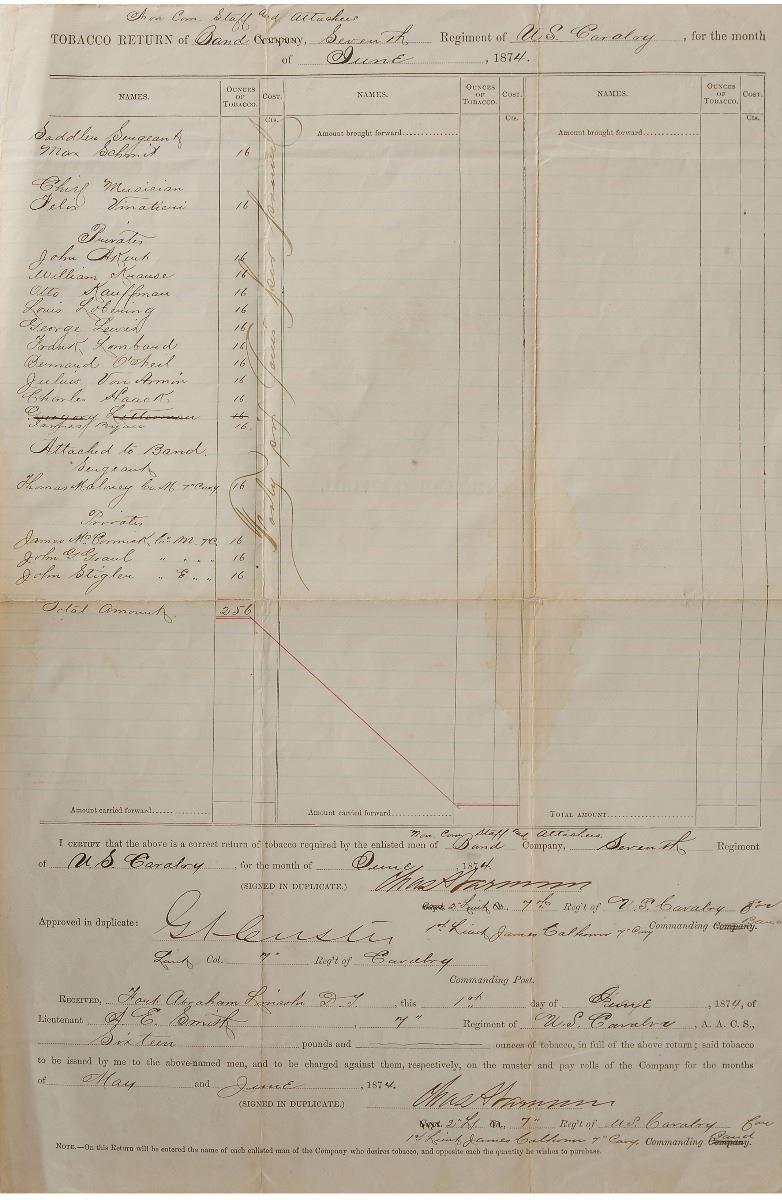 Non Com. Staff and Attachees
TOBACCO RETURN of Band Company, Seventh Regiment of U.S. Cavalry, for the month
of June, 1874.
NAMES. OUNCES OF TOBACCO. COST. NAMES. OUNCES OF TOBACCO. COST. NAMES. OUNCES OF TOBACCO. COST.
Cts. Cts. Cts.
Amount brought forward Amount brought forward
Saddler Sergeant
Max Schmit 16
Chief Musician
Felix Vinatieri 16
Privates
John 16
William Krause 16
Otto Kauffman 16
Louis 16
George Lewis 16
Frank Lombard 16
Bernard O'Neil 16
Julius Von Arnim 16
Charles Haack 16
Gregory 16
16
Attached to Band.
Sergeant
Thomas Maloney Co. M. 7" Cavy 16
Privates
James McCormick Co. M. 7"C. 16
John G Graul " " " " 16
John Stigler " E " " 16
Total Amount 256
Amount carried forward Amount carried forward TOTAL AMOUNT
Non Com. Staff and Attachees
I CERTIFY that the above is a correct return of tobacco required by the enlisted men of Band Company, Seventh Regiment
of U.S. Cavalry, for the month of June 1874.
(SIGNED IN DUPLICATE.)
2" Lieut 7th Reg't of U.S. Cavalry for
1st Lieut James Calhoun 7" Cavy Commanding Company. Band
Approved in duplicate: G A Custer
Lieut Col. 7" Reg't of Cavalry
Commanding Post.
RECEIVED, Fort Abraham Lincoln D.T., this 1st day of June, 1874, of
Lieutenant A. E. Smith, 7" Regiment of U.S. Cavalry, A. A. C. S.,
Sixteen pounds and ounces of tobacco, in full of the above return; said tobacco
to be issued by me to the above-named men, and to be charged against them, respectively, on the muster and pay rolls of the Company for the months
of May and June, 1874.
(SIGNED IN DUPLICATE.)
2" Lt 7" Reg't of U.S. Cavalry for
1st Lieut James Calhoun 7" Cavy. Commanding Company. Band
NOTE.—On this Return will be entered the name of each enlisted man of the Company who desires tobacco, and opposite each the quantity he wishes to purchase.